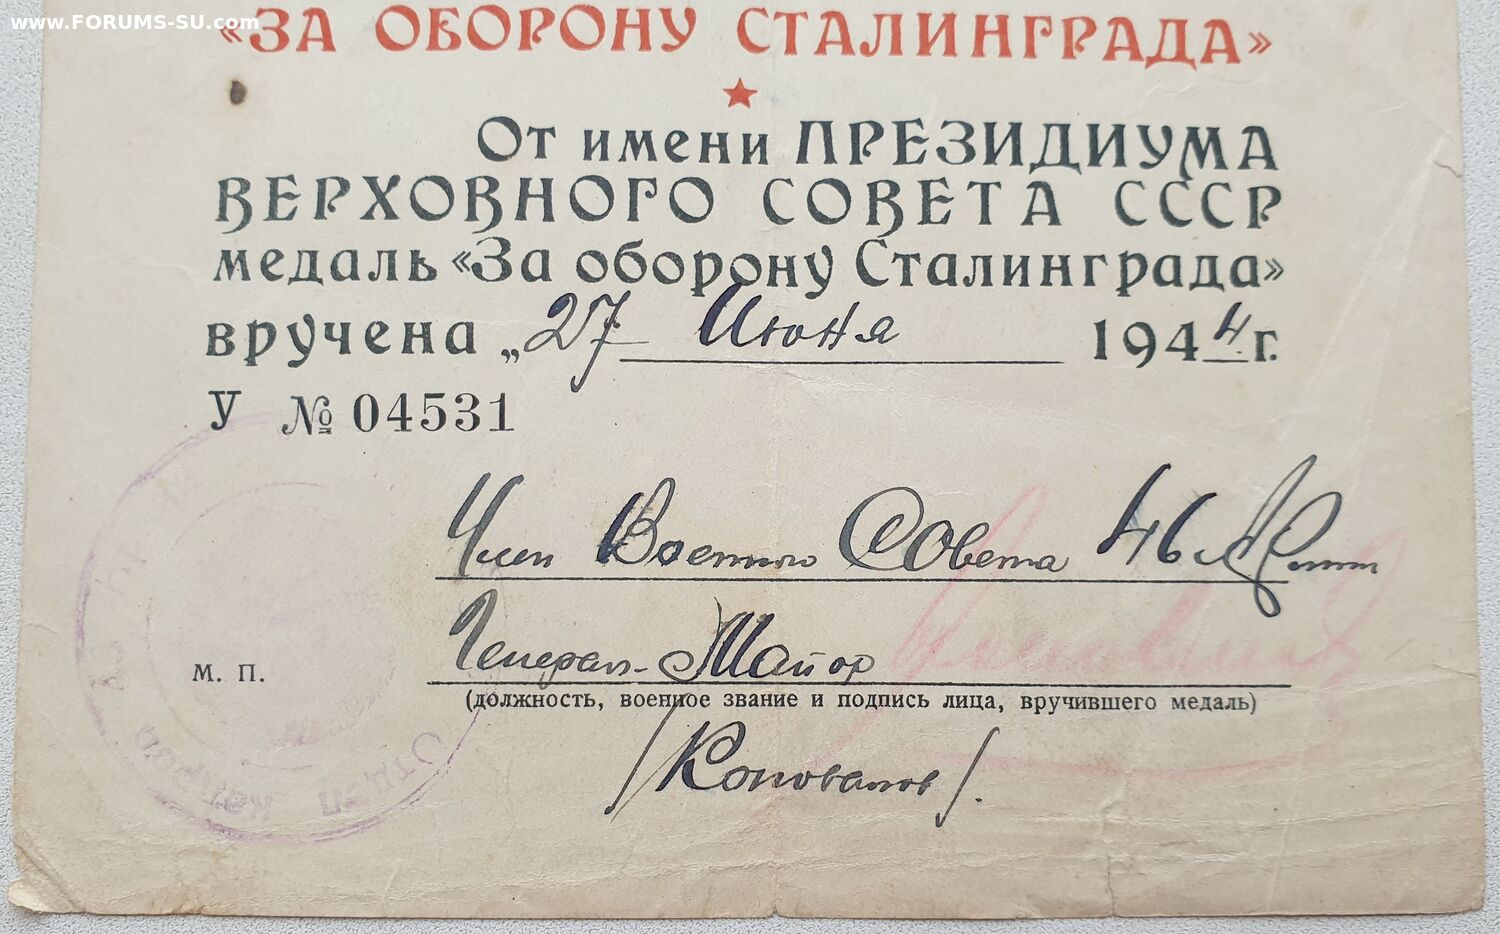 www.FORUMS-SU.com
«ЗА ОБОРОНУ СТАЛИНГРАДА»
От имени ПРЕЗИДИУМА
ВЕРХОВНОГО СОВЕТА СССР
медаль «За оборону Сталинграда»
вручена „27 Июня 1944 г.
У № 04531
Член Военного Совета 46 Армии
Генерал-Майор
М. П.
(должность, военное звание и подпись лица, вручившего медаль)
/Коновалов/.